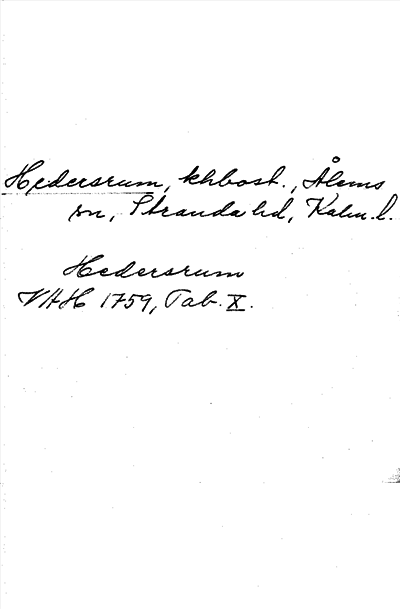 Hedersrum, khbost., Ålems
sn, Stranda hd, Kalm. l.
Hedersrum
VHH 1759, Tab. X.